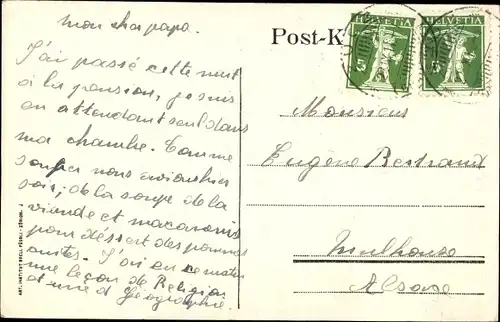 mon cher papa.
J'ai passé cette nuit
à la pension, je suis
en attendant seul dans
ma chambre. Comme
souper nous avions hier
soir; de la soupe de la
viande et macaronis
pour déssert des pommes
cuites. J'ai eu ce matin
une leçon de Religion
et une d Géographie.
Post-K
HELVETIA
HELVETIA
Monsieur
Eugène Bertrand
Mulhouse
Alsace